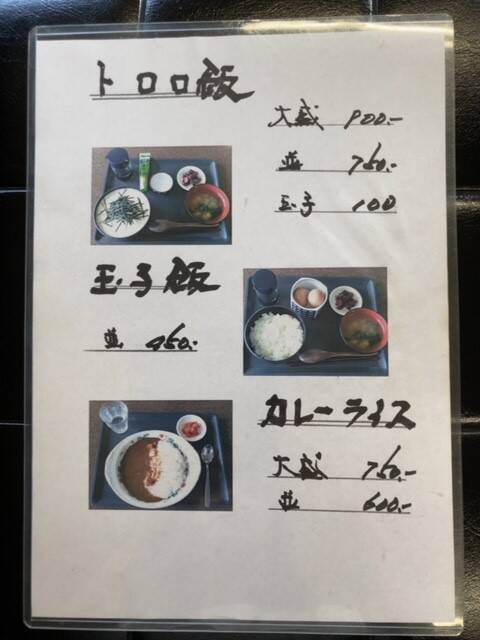 トロロ飯
大盛 900.-
並 750.-
玉子 100
玉子飯
並 450.-
カレーライス
大盛 750.-
並 600.-